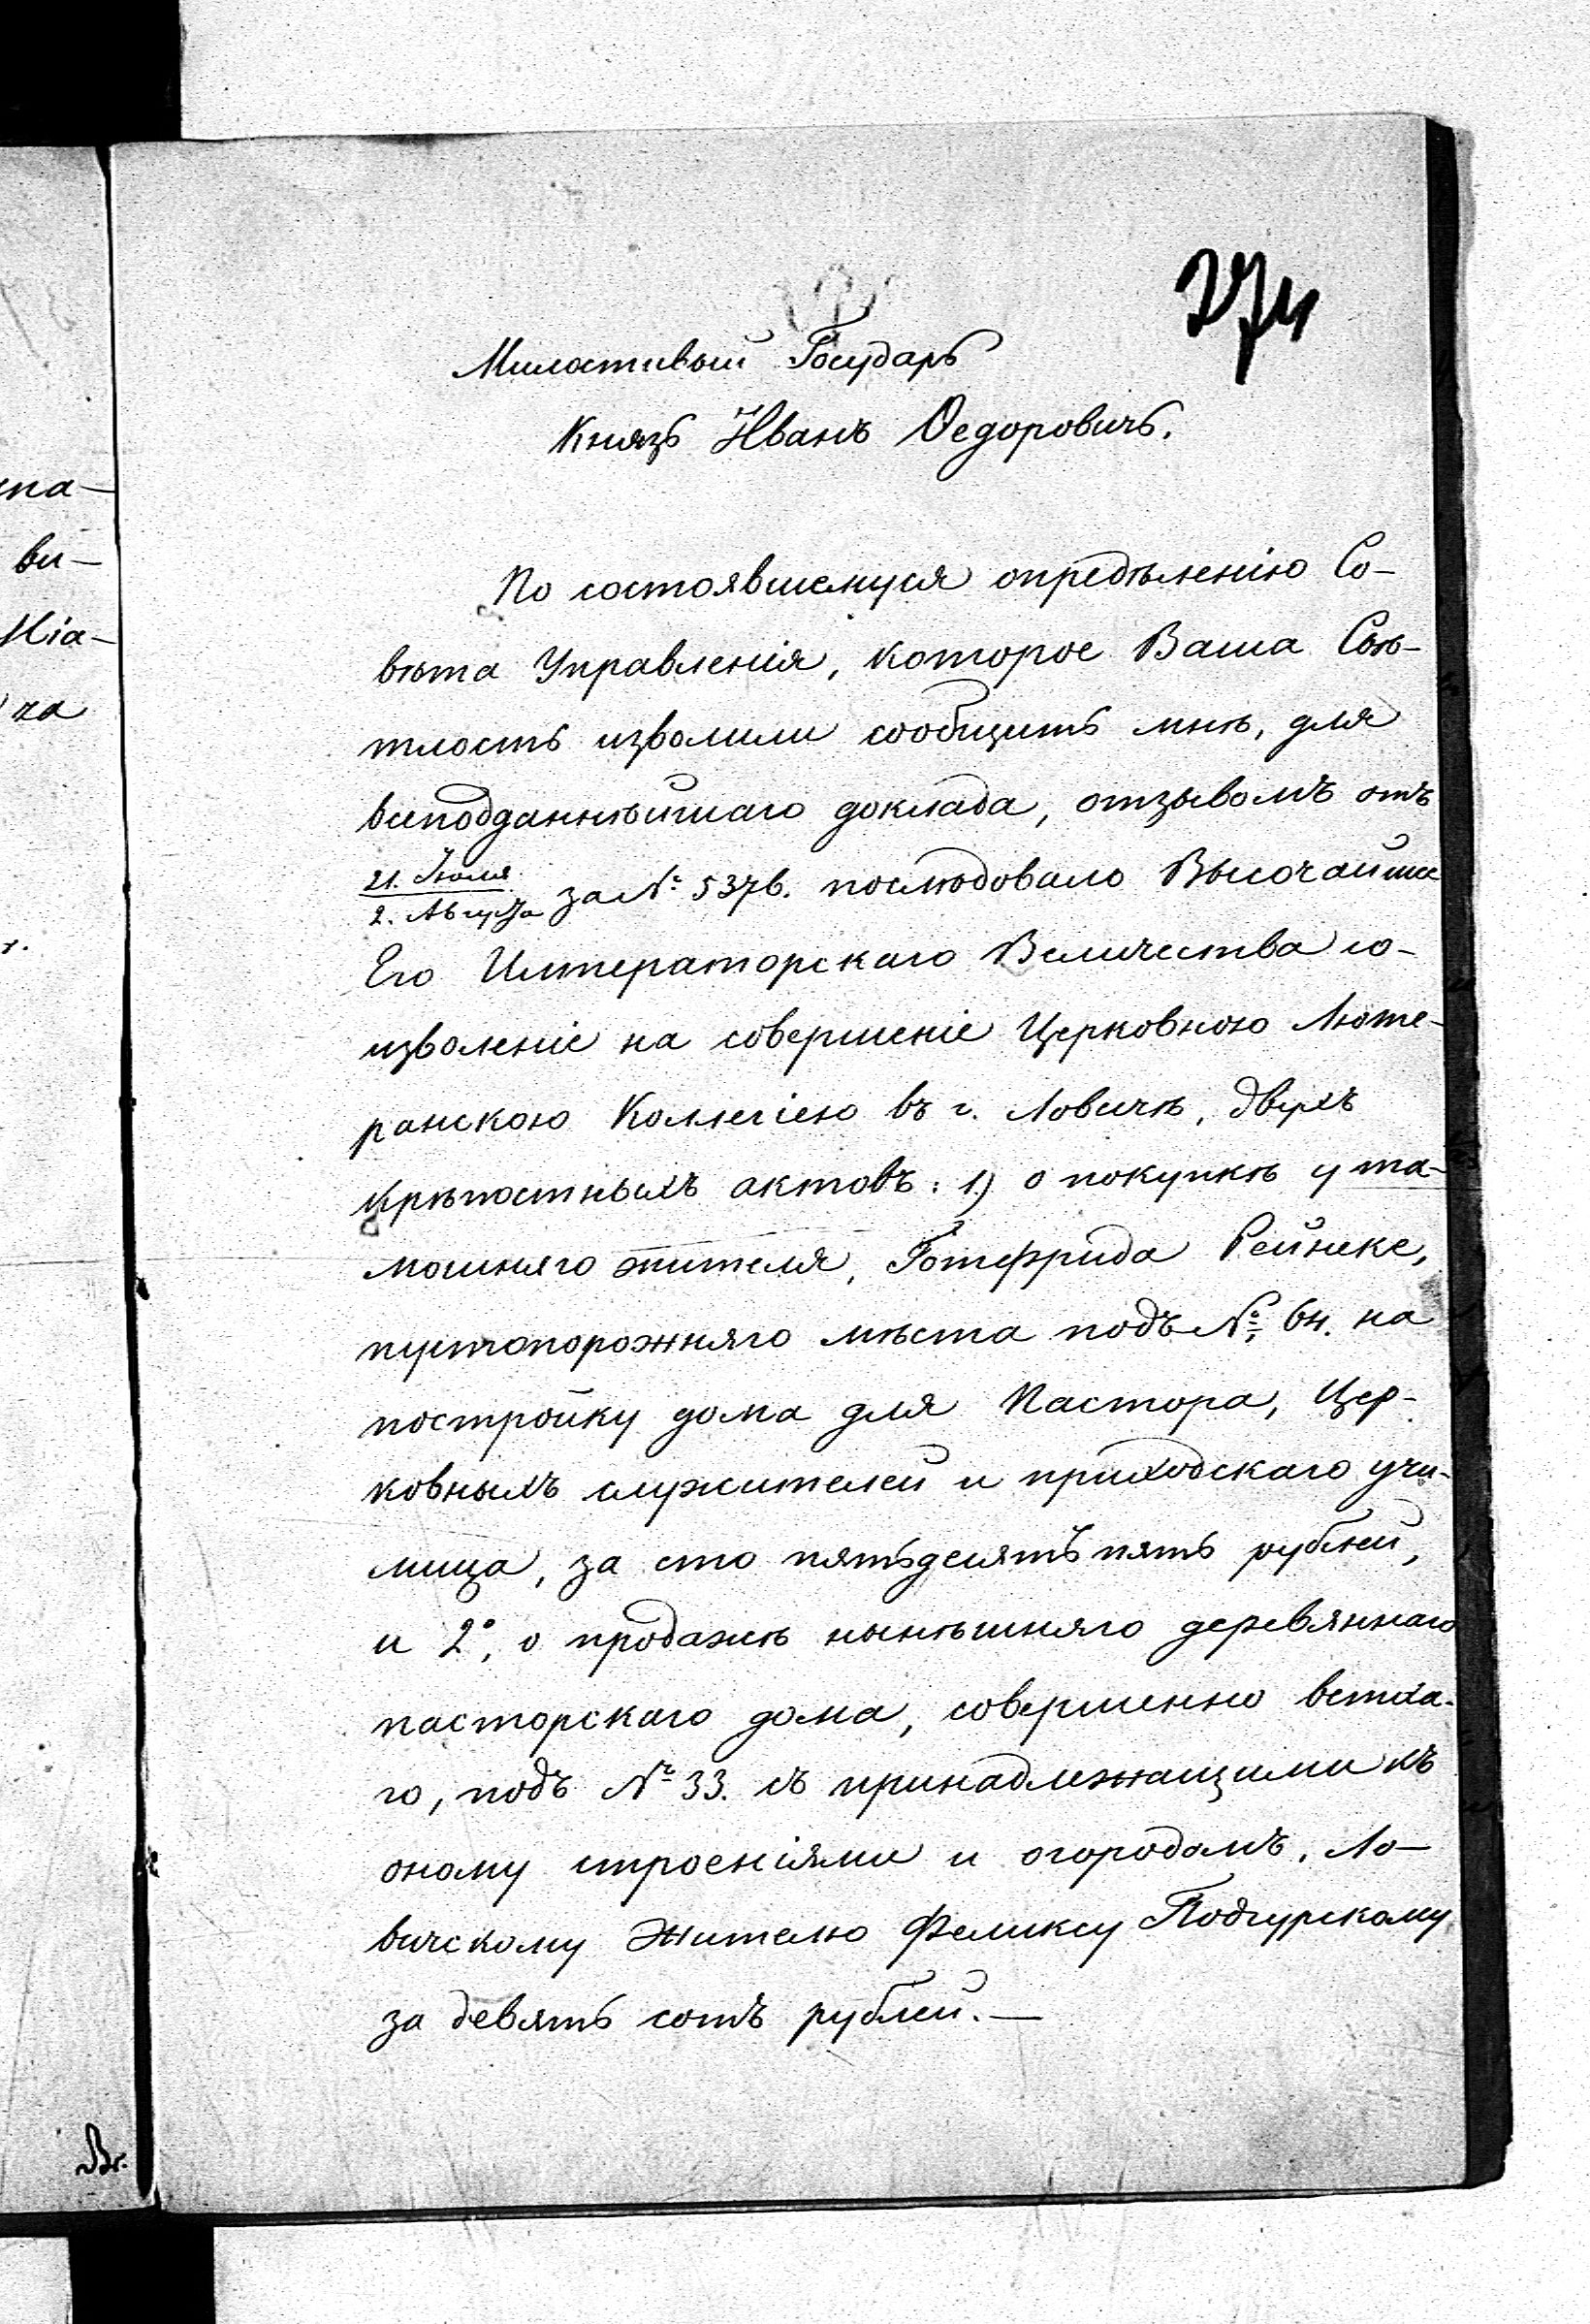 274
Милостивый Государь
Князь Иванъ Ѳедоровичъ.
По состоявшемуся опредѣленію Со-
вѣта Управленія, которое Ваша Свѣ-
тлость изволили сообщить мнѣ, для
всеподданнѣйшаго доклада, отзывомъ отъ
21. Іюля
2. Августа за № 5376. послѣдовало Высочайшее
Его Императорскаго Величества со-
изволеніе на совершеніе Церковною Люте-
ранскою Коллегіею въ г. Ловичѣ, двухъ
крѣпостныхъ актовъ: 1.) о покупкѣ у та-
мошняго жителя, Готфрида Рейнеке,
пустопорожняго мѣста подъ № 64. на
постройку дома для Пастора, Цер-
ковныхъ служителей и приходскаго учи-
лища, за сто пятьдесятъ пять рублей,
и 2°, о продажѣ нынѣшняго деревяннаго
пасторскаго дома, совершенно ветха-
го, подъ № 33. съ принадлежащими къ
оному строеніями и огородомъ, Ло-
вичскому Жителю Феликсу Подгурскому
за девять сотъ рублей.—